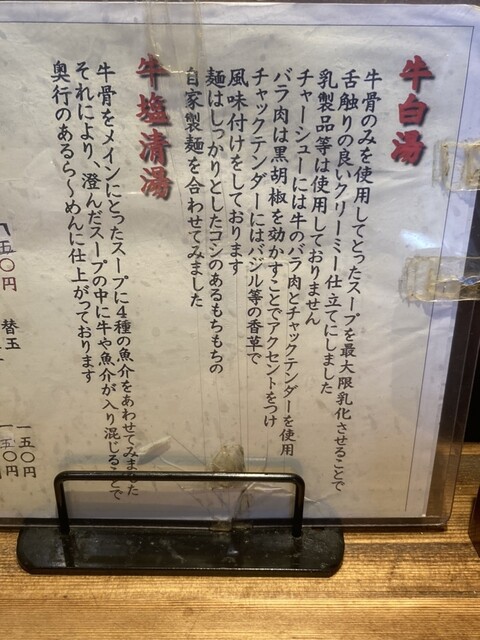 牛白湯
牛骨のみを使用してとったスープを最大限乳化させることで
舌触りの良いクリーミー仕立てにしました
乳製品等は使用しておりません
チャーシューには牛のバラ肉とチャックテンダーを使用
バラ肉は黒胡椒を効かすことでアクセントをつけ
チャックテンダーにはバジル等の香草で
風味付けをしております
麺はしっかりとしたコシのあるもちもちの
自家製麺を合わせてみました
牛塩清湯
牛骨をメインにとったスープに4種の魚介をあわせてみました
それにより、澄んだスープの中に牛や魚介が入り混じることで
奥行のあるら〜めんに仕上がっております
一五〇円
替玉
一五〇円
五〇円